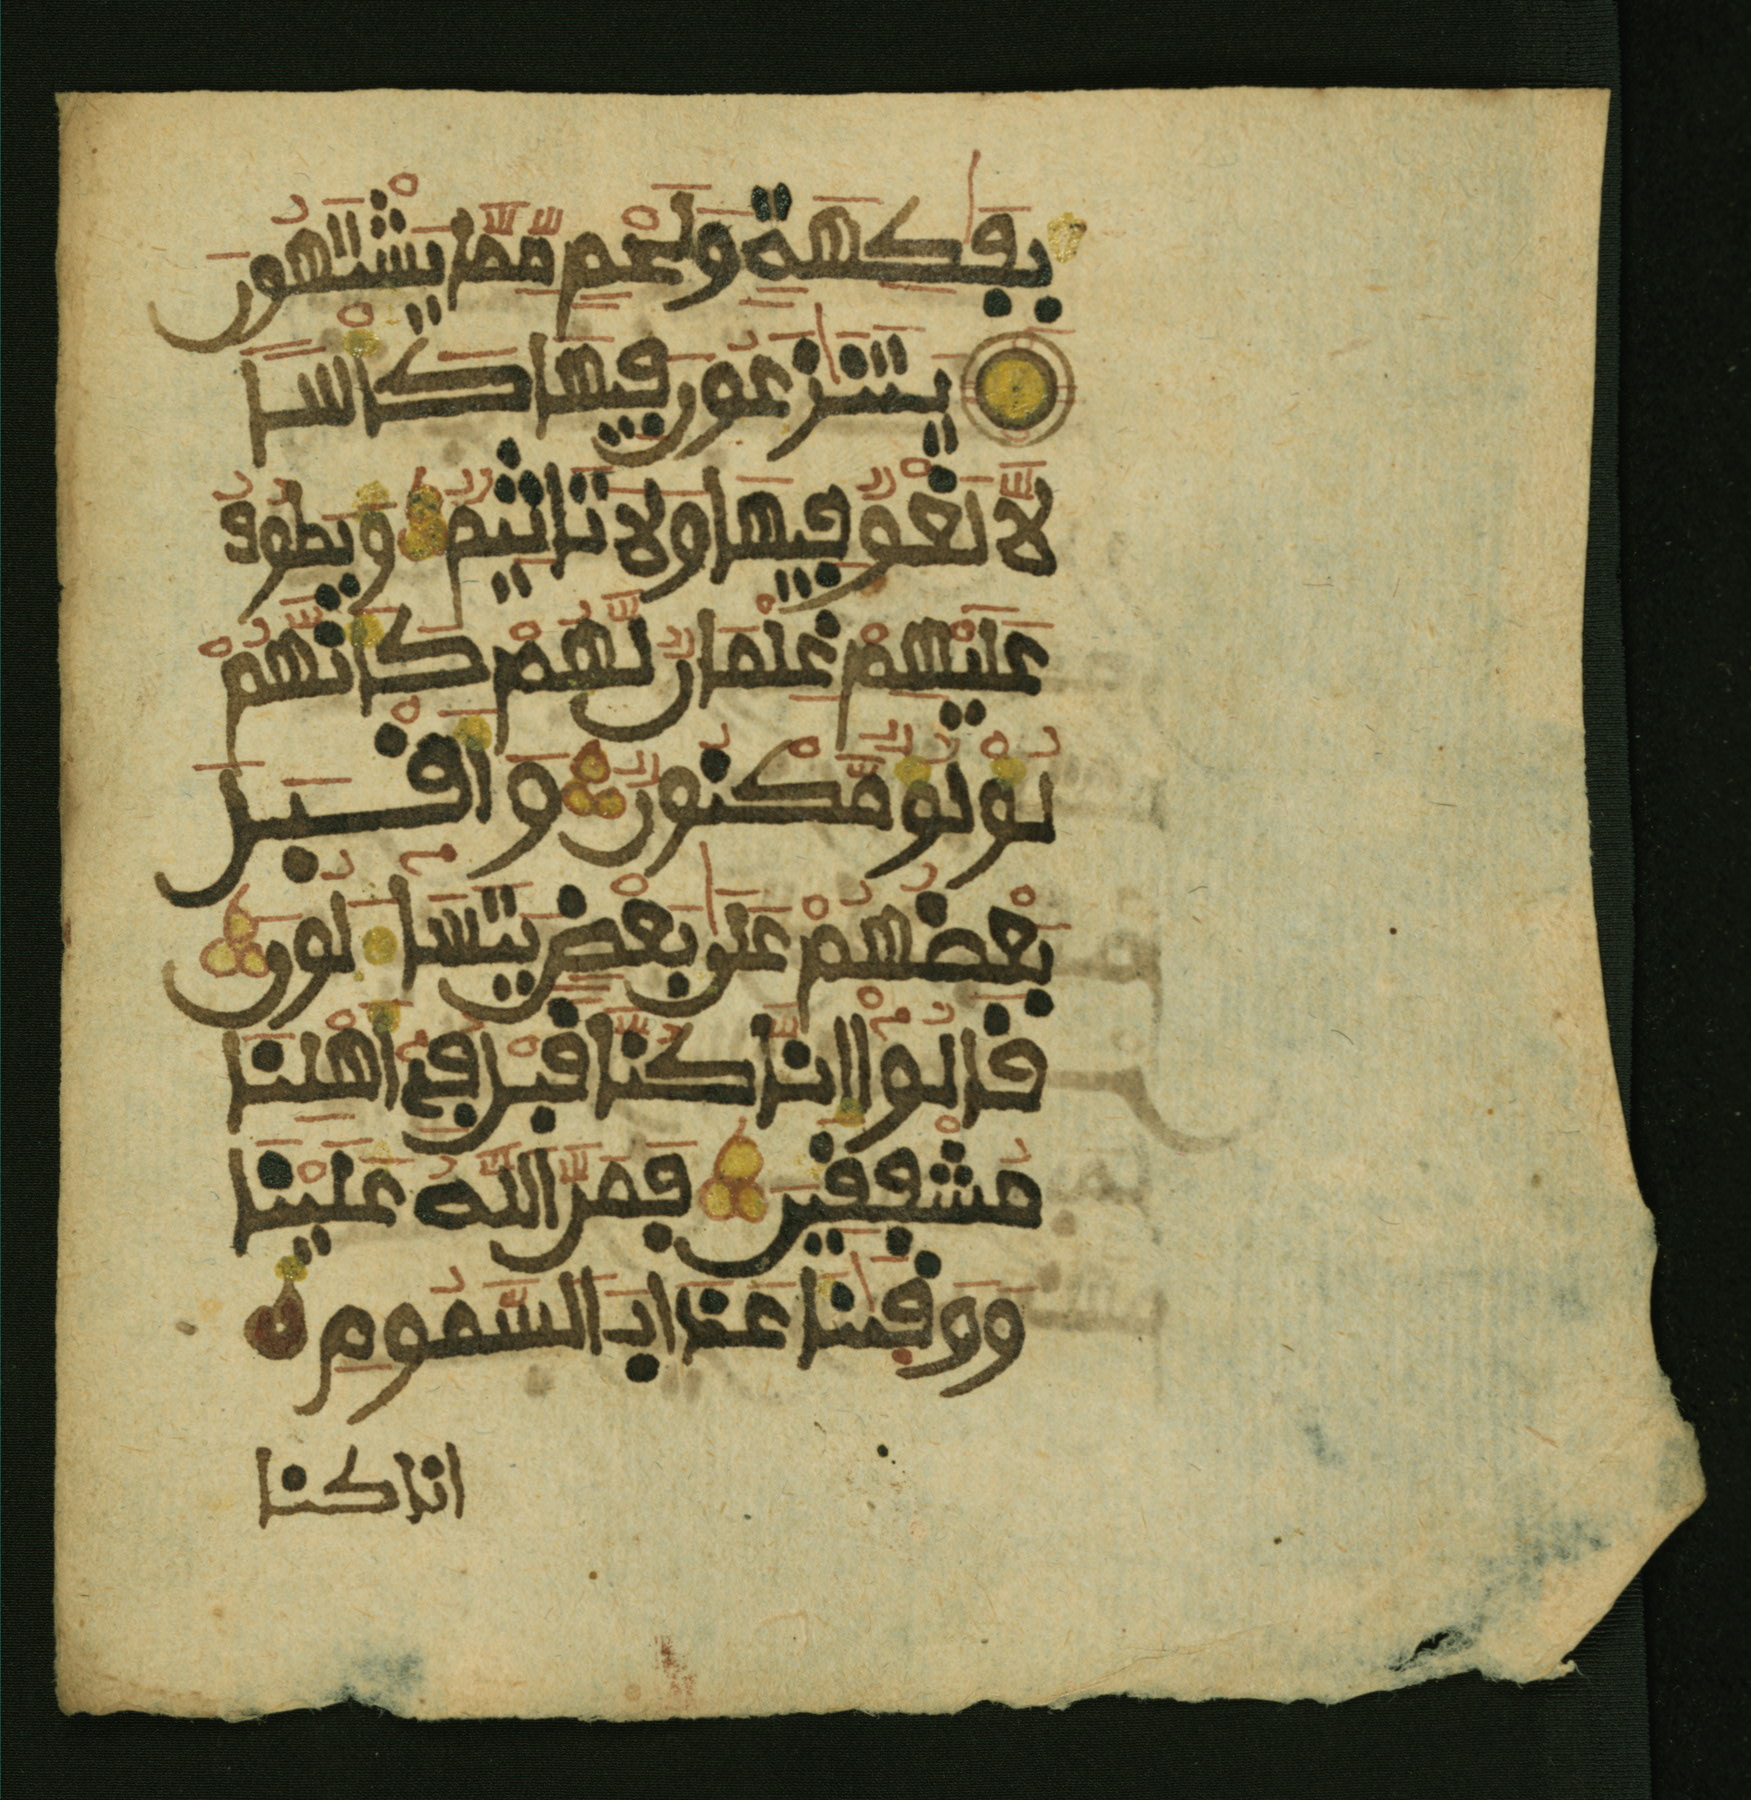 بِفَٰكِهَةٍ وَلَحْمٍ مِّمَّا يَشْتَهُونَ
يَتَنَٰزَعُونَ فِيهَا كَأْسًا
لَّا لَغْوٌ فِيهَا وَلَا تَأْثِيمٌ وَيَطُوفُ
عَلَيْهِمْ غِلْمَانٌ لَّهُمْ كَأَنَّهُمْ
لُؤْلُؤٌ مَّكْنُونٌ وَأَقْبَلَ
بَعْضُهُمْ عَلَىٰ بَعْضٍ يَتَسَآءَلُونَ
قَالُوٓاْ إِنَّا كُنَّا قَبْلُ فِےٓ أَهْلِنَا
مُشْفِقِينَ فَمَنَّ اللَّهُ عَلَيْنَا
وَوَقَىٰنَا عَذَابَ السَّمُومِ
انا كنا